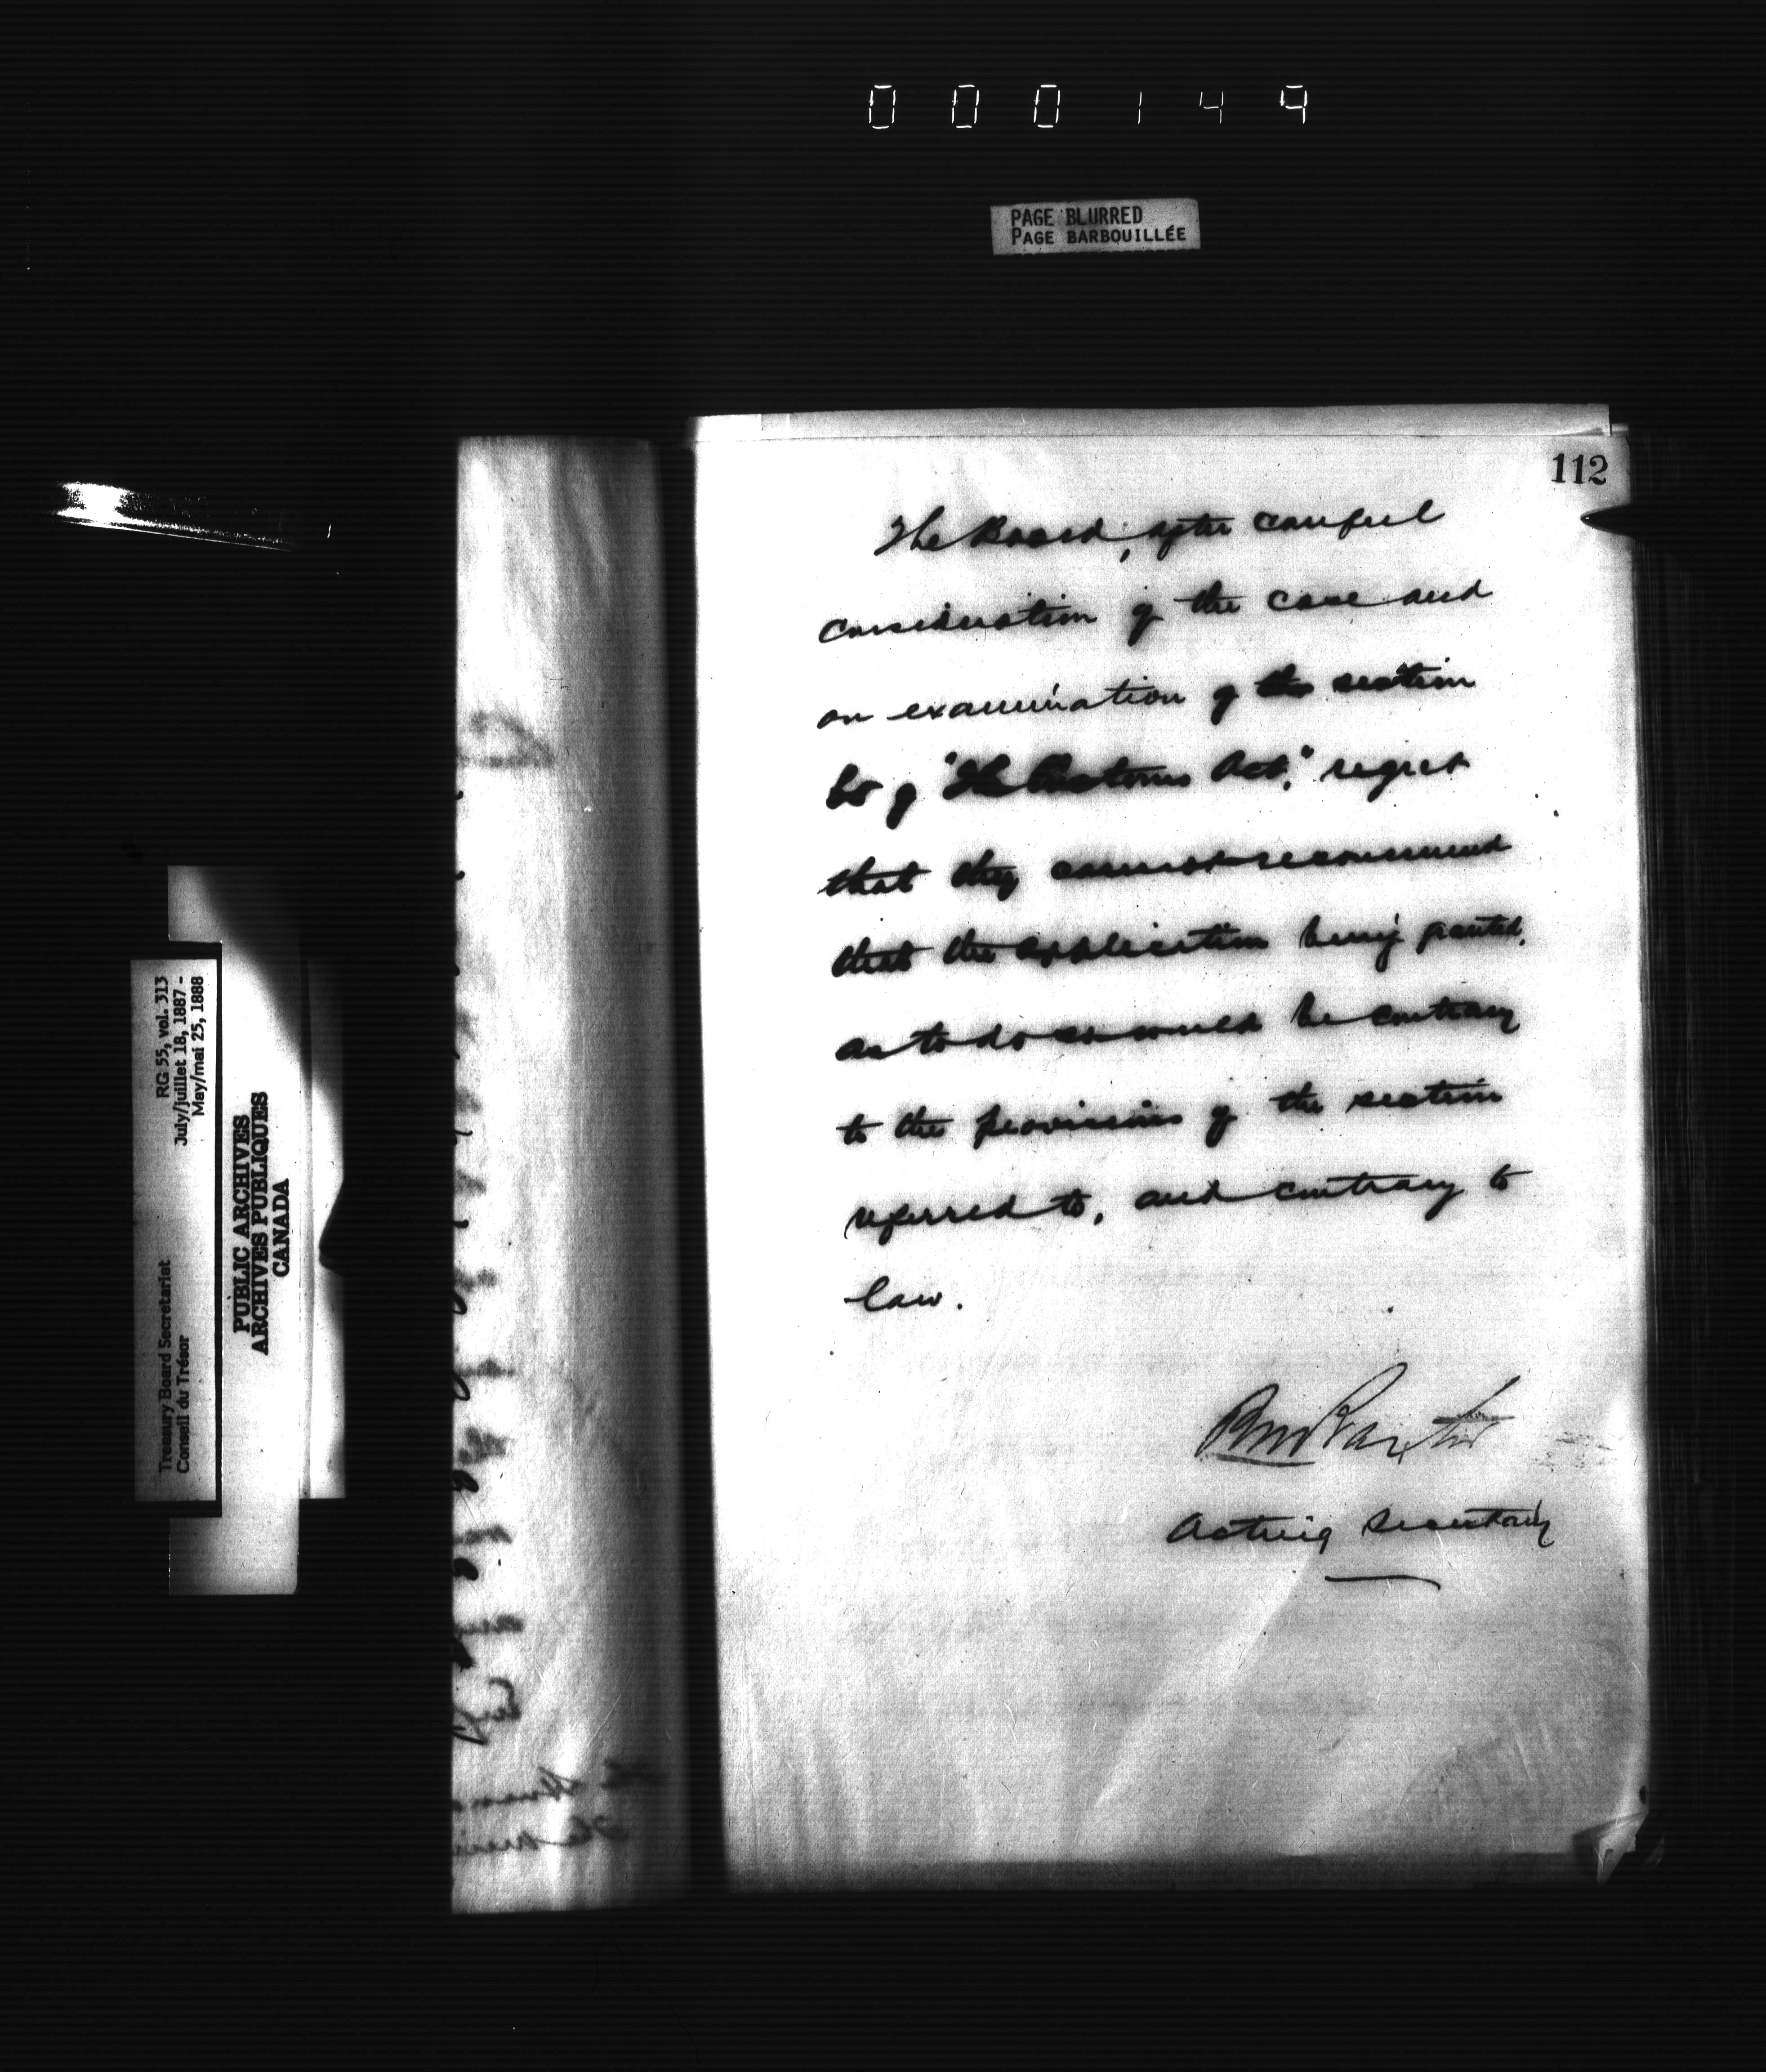 000149
PAGE BLURRED
PAGE BARBOUILLÉE
112
The Board, after careful
consideration of the case and
on examination of the section
of "The Customs Act," regret
that they cannot recommend
that the application being granted,
as to do so would be contrary
to the provisions of the section
referred to, and contrary to
law.
Acting Secretary
RG 55, vol. 313
July/juillet 18, 1887 -
May/mai 25, 1888
Treasury Board Secretariat
Conseil du Trésor
PUBLIC ARCHIVES
ARCHIVES PUBLIQUES
CANADA